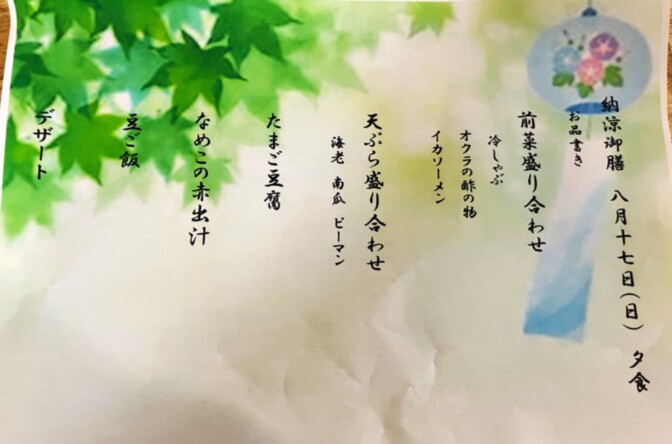 納涼御膳 八月十七日(日) 夕食
お品書き
前菜盛り合わせ
冷しゃぶ
オクラの酢の物
イカソーメン
天ぷら盛り合わせ
海老 南瓜 ピーマン
たまご豆腐
なめこの赤出汁
豆ご飯
デザート